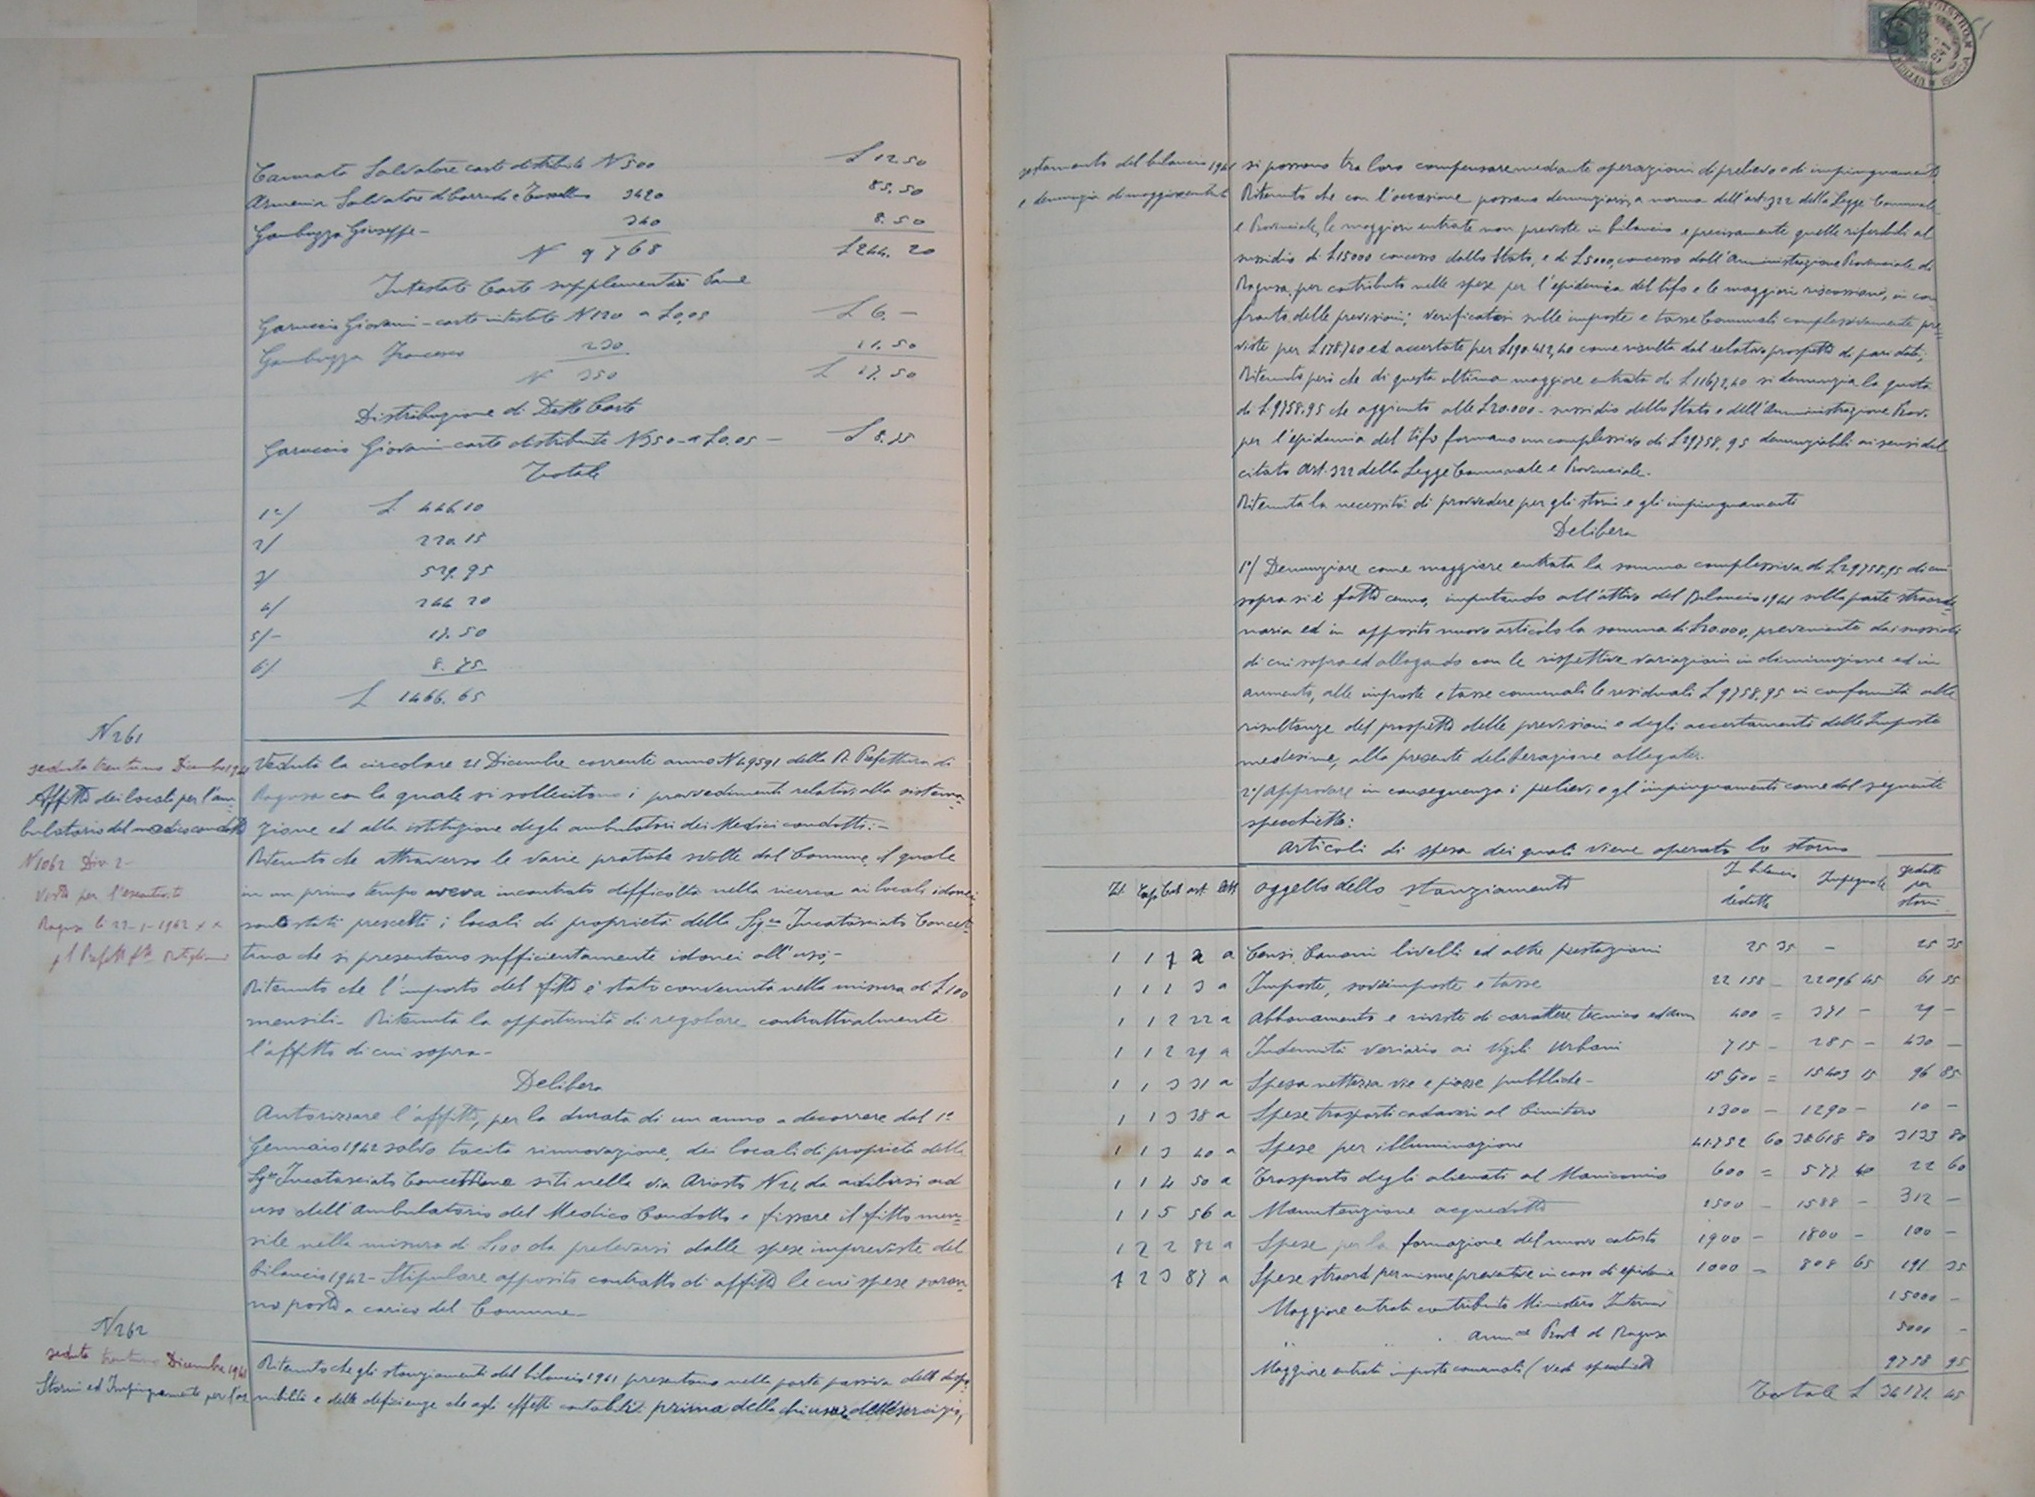 Cannata Salvatore carte distribuite N 500 £ 12.50
Armenia Salvatore di Corrado e 3420 85.50
Gambuzza Giuseppe - 340 8.50
N 9768 £ 244. 20
Intestate Carte supplementari Pane
Garuccio Giovanni - carte intestate N 120 a £0,05 £ 6. -
Gambuzza Francesco 230 11.50
N 350 £ 17.50
Distribuzione di Dette Carte
Garuccio Giovanni carte distribuite N 350 - a £0.05 - £ 8.75
Totale
1°/ £ 446.10
2/ 220.15
3/ 529.95
4/ 244 20
5/- 17.50
6/ 8.75
£ 1466.65
N 261
seduta trentuno Dicembre 1941
Affitto dei locali per l'am-
bulatorio del medico condotto
N 1062 Div 2 -
Visto per l'esecutività
Ragusa li 22-1-1942 XX
p/ Prefetto
Veduta la circolare 21 Dicembre corrente anno N 49591 della R. Prefettura di
Ragusa con la quale si sollecitano i provvedimenti relativi alla sistema-
zione ed alla istituzione degli ambulatori dei Medici condotti: -
Ritenuto che attraverso le varie pratiche svolte dal Comune, il quale
in un primo tempo aveva incontrato difficoltà nella ricerca ai locali idonei
sono stati prescelti i locali di proprietà della Sig.ra Incatasciato Concet-
tina che si presentano sufficientemente idonei all'uso. -
Ritenuto che l'importo del fitto è stato convenuto nella misura di £ 100
mensili - Ritenuta la opportunità di regolare contrattualmente
l'affitto di cui sopra -
Delibera
Autorizzare l'affitto, per la durata di un anno a decorrere dal 1°
Gennaio 1942 salvo tacita rinnovazione, dei locali di proprietà della
Sig.ra Incatasciato Concettina siti nella via Ariosto N 24 da adibirsi ad
uso dell'ambulatorio del Medico Condotto e fissare il fitto men-
sile nella misura di £100 da prelevarsi dalle spese impreviste del
bilancio 1942 - Stipulare apposito contratto di affitto le cui spese saran-
no poste a carico del Comune -
N 262
seduta trentuno Dicembre 1941
Storni ed Impinguamento per l'as
Ritenuto che gli stanziamenti del bilancio 1941 presentano nella parte passiva delle dispo-
nibilità e delle deficienze che agli effetti contabili: prima della chiusura dell'esercizio,
sestamento del bilancio 1941
e denunzia di maggiori entrate
si possono tra loro compensare mediante operazioni di prelievo o di impinguamenti.
Ritenuto che con l'occasione possano denunziarsi, a norma dell'art. 322 della Legge Comunale
e Provinciale, le maggiori entrate non previste in bilancio e precisamente quelle riferibili al
sussidio di £15000 concesso dallo Stato, e di £5000, concesso dall'Amministrazione Provinciale di
Ragusa, per contributo nelle spese per l'epidemia del tifo e le maggiori riscossioni, in con
fronto delle previsioni; verificatesi sulle imposte e tasse Comunali complessivamente pre-
viste per £178740 ed accertate per £190.412,40 come risulta dal relativo prospetto di pari data;
Ritenuto però che di questa ultima maggiore entrata di £11672,40 si denunzia la quota
di £9758.95 che aggiunta alle £20.000 - sussidio dello Stato e dell'Amministrazione Prov.
per l'epidemia del tifo formano un complessivo di £29758,95 denunziabili ai sensi del
citato Art. 322 della Legge Comunale e Provinciale -
Ritenuta la necessità di provvedere per gli storni e gli impinguamenti
Delibera
1°/ Denunziare come maggiore entrata la somma complessiva di £29758,95 di cui
sopra si è fatto cenno, imputando all'attivo del Bilancio 1941 nella parte straordi-
naria ed in apposito nuovo articolo la somma di £20.000, proveniente dai sussidi
di cui sopra ed allogando con le rispettive variazioni in diminuzione ed in
aumento, alle imposte e tasse comunali le residuali £ 9758.95 in conformità alle
risultanze del prospetto delle previsioni e degli accertamenti delle Imposte
medesime, alla presente deliberazione allegato.
2°/ Approvare in conseguenza i prelievi, e gl'impinguamenti come dal seguente
specchietto:
Articoli di spesa dei quali viene operato lo storno
Tit Cap Cat art Lett oggetto dello stanziamento In bilancio e dedotto Impegnate Dedotte per storni
1 1 1 2 a Censi Canoni livelli ed altre prestazioni 25 35 - 25 35
1 1 1 3 a Imposte, sovrimposte e tasse 22 158 - 22096 45 61 55
1 1 2 22 a Abbonamento e riviste di carattere tecnico ed amm 400 = 371 - 29 -
1 1 2 29 a Indennità vestiario ai Vigili Urbani 715 - 285 - 430 -
1 1 3 31 a Spesa nettezza vie e piazze pubbliche - 15500 = 15403 15 96 85
1 1 3 38 a Spese trasporti cadaveri al Cimitero 1300 - 1290 - 10 -
1 1 3 40 a Spese per illuminazione 41752 60 38618 80 3133 80
1 1 4 50 a Trasporto degli alienati al Manicomio 600 = 577 40 22 60
1 1 5 56 a Manutenzione acquedotto 1500 - 1588 - 312 -
1 2 2 82 a Spese per la formazione del nuovo catasto 1900 - 1800 - 100 -
1 2 3 87 a Spese straord per misure preventive in caso di epidemie 1000 - 808 65 191 35
Maggiore entrata contributo Ministero Interno 15000 -
" " " Amm.ne Prov. di Ragusa 5000 -
Maggiore entrata imposte comunali (vedi specchietto 9758 95
Totale £ 34171 45